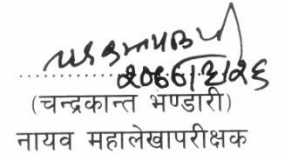 २०७७/३/२६
(चन्द्रकान्त भण्डारी)
नायव महालेखापरीक्षक